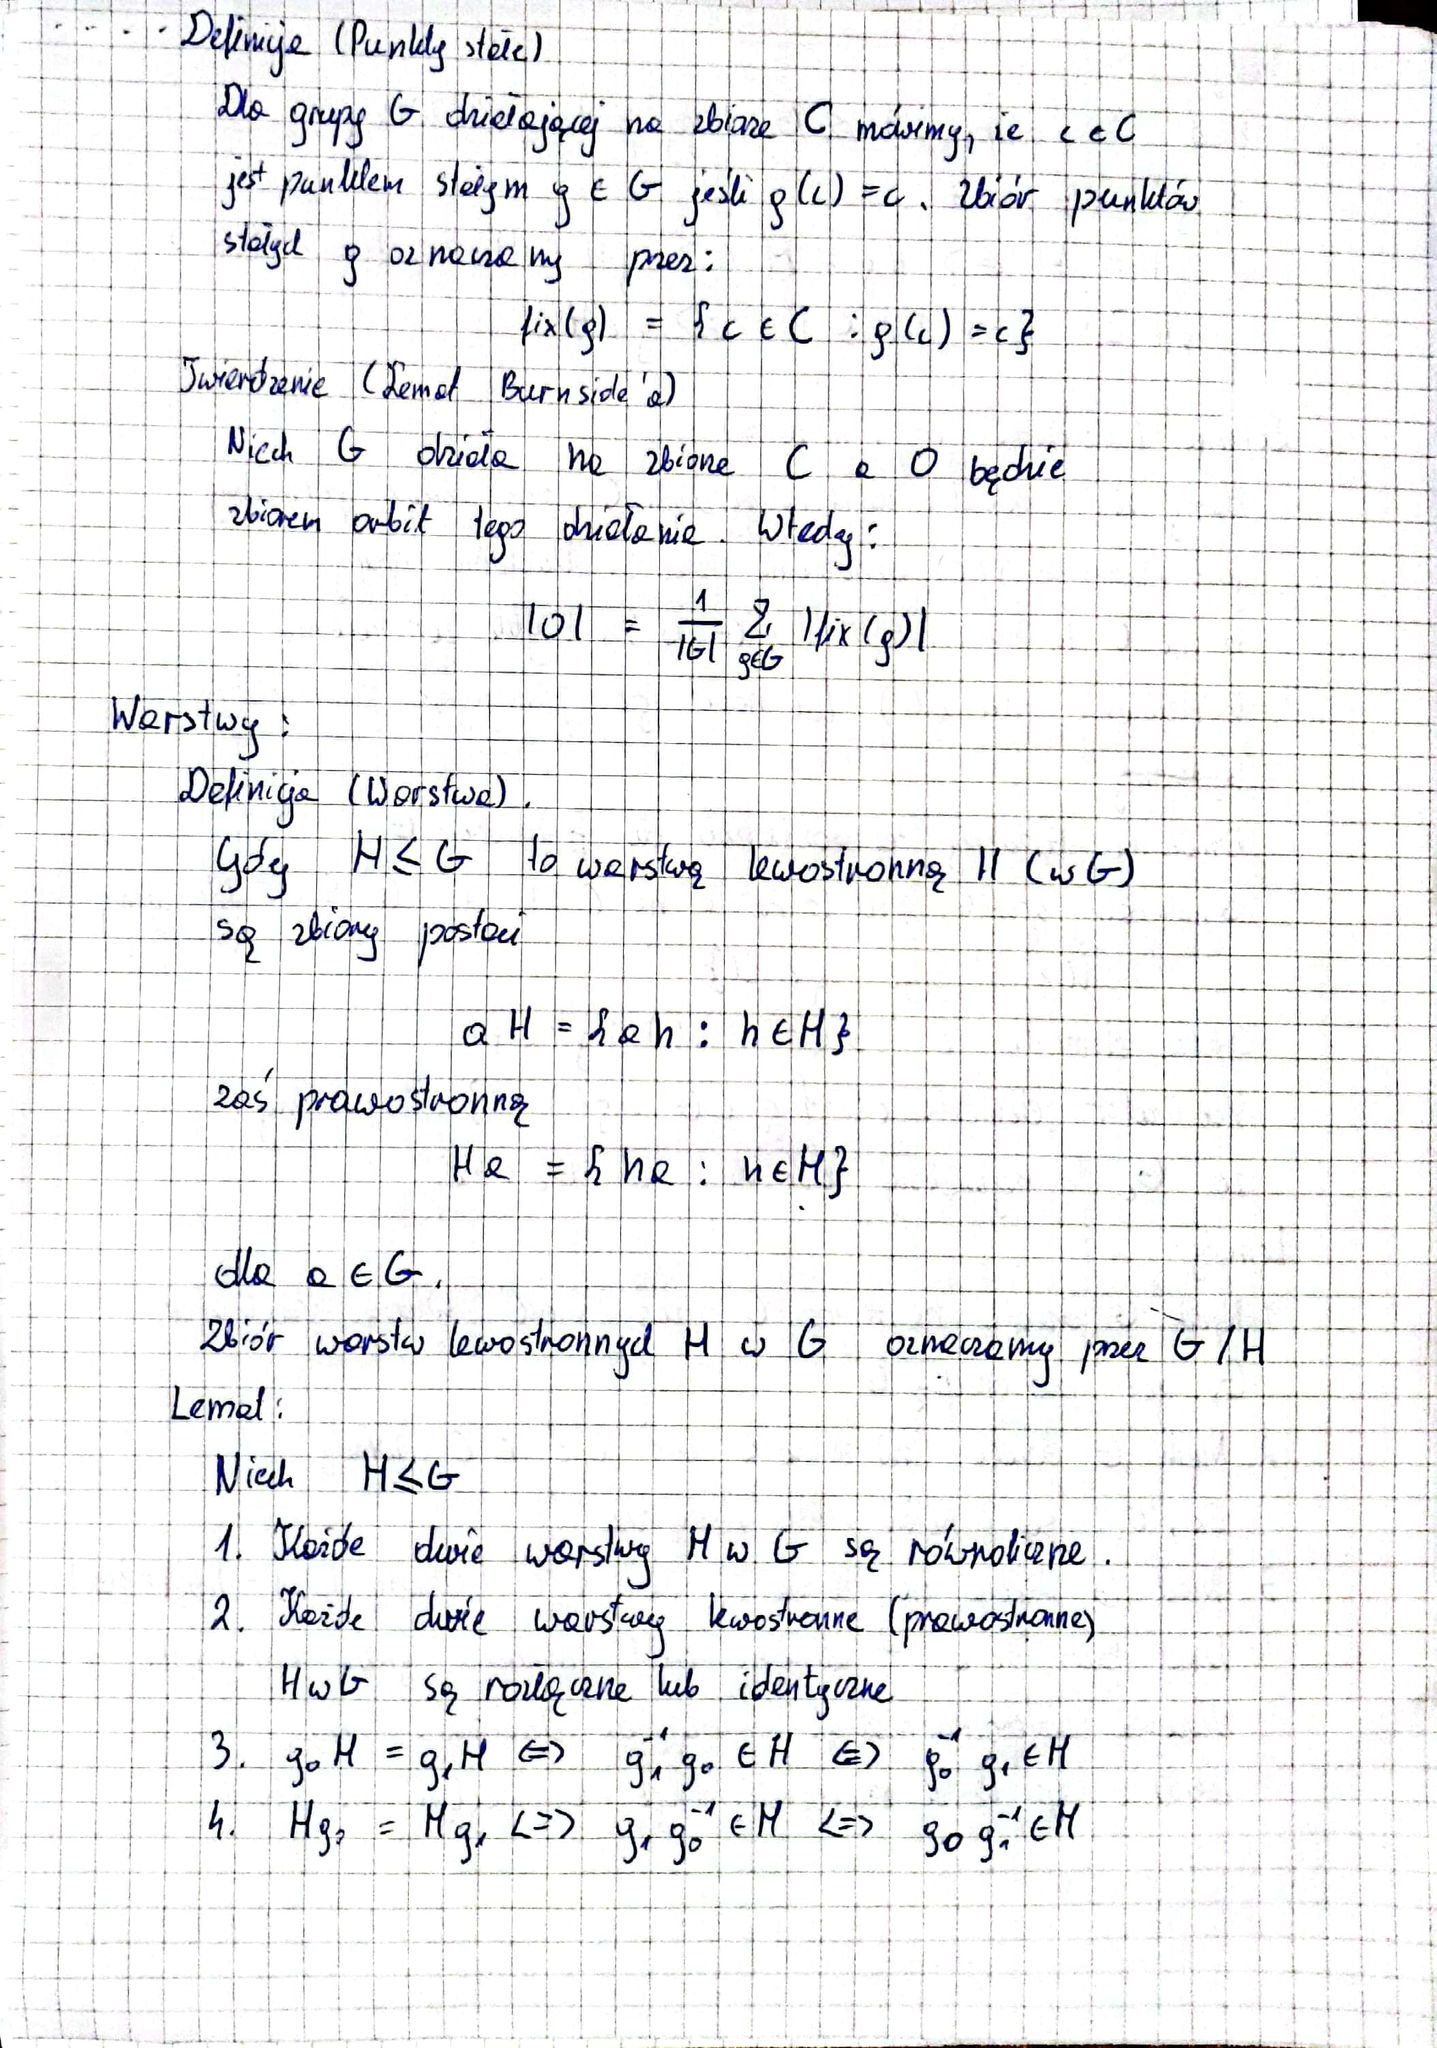 Definicja (Punkty stałe)
Dla grupy G działającej na zbiorze C mówimy, że c ∈ C
jest punktem stałym g ∈ G jeśli g(c) = c. Zbiór punktów
stałych g oznaczamy przez:
fix(g) = {c ∈ C : g(c) = c}
Twierdzenie (Lemat Burnside'a)
Niech G działa na zbiorze C a O będzie
zbiorem orbit tego działania. Wtedy:
|O| = 1/|G| Σ_{g∈G} |fix(g)|
Warstwy:
Definicja (Warstwa).
Gdy H ≤ G to warstwą lewostronną H (w G)
są zbiory postaci
aH = {ah : h ∈ H}
zaś prawostronną
Ha = {ha : h ∈ H}
dla a ∈ G.
Zbiór warstw lewostronnych H w G oznaczamy przez G/H
Lemat:
Niech H ≤ G
1. Każde dwie warstwy H w G są równoliczne.
2. Każde dwie warstwy lewostronne (prawostronne)
H w G są rozłączne lub identyczne
3. g₀H = g₁H <=> g₁⁻¹ g₀ ∈ H <=> g₀⁻¹ g₁ ∈ H
4. Hg₀ = Hg₁ <=> g₁ g₀⁻¹ ∈ H <=> g₀ g₁⁻¹ ∈ H